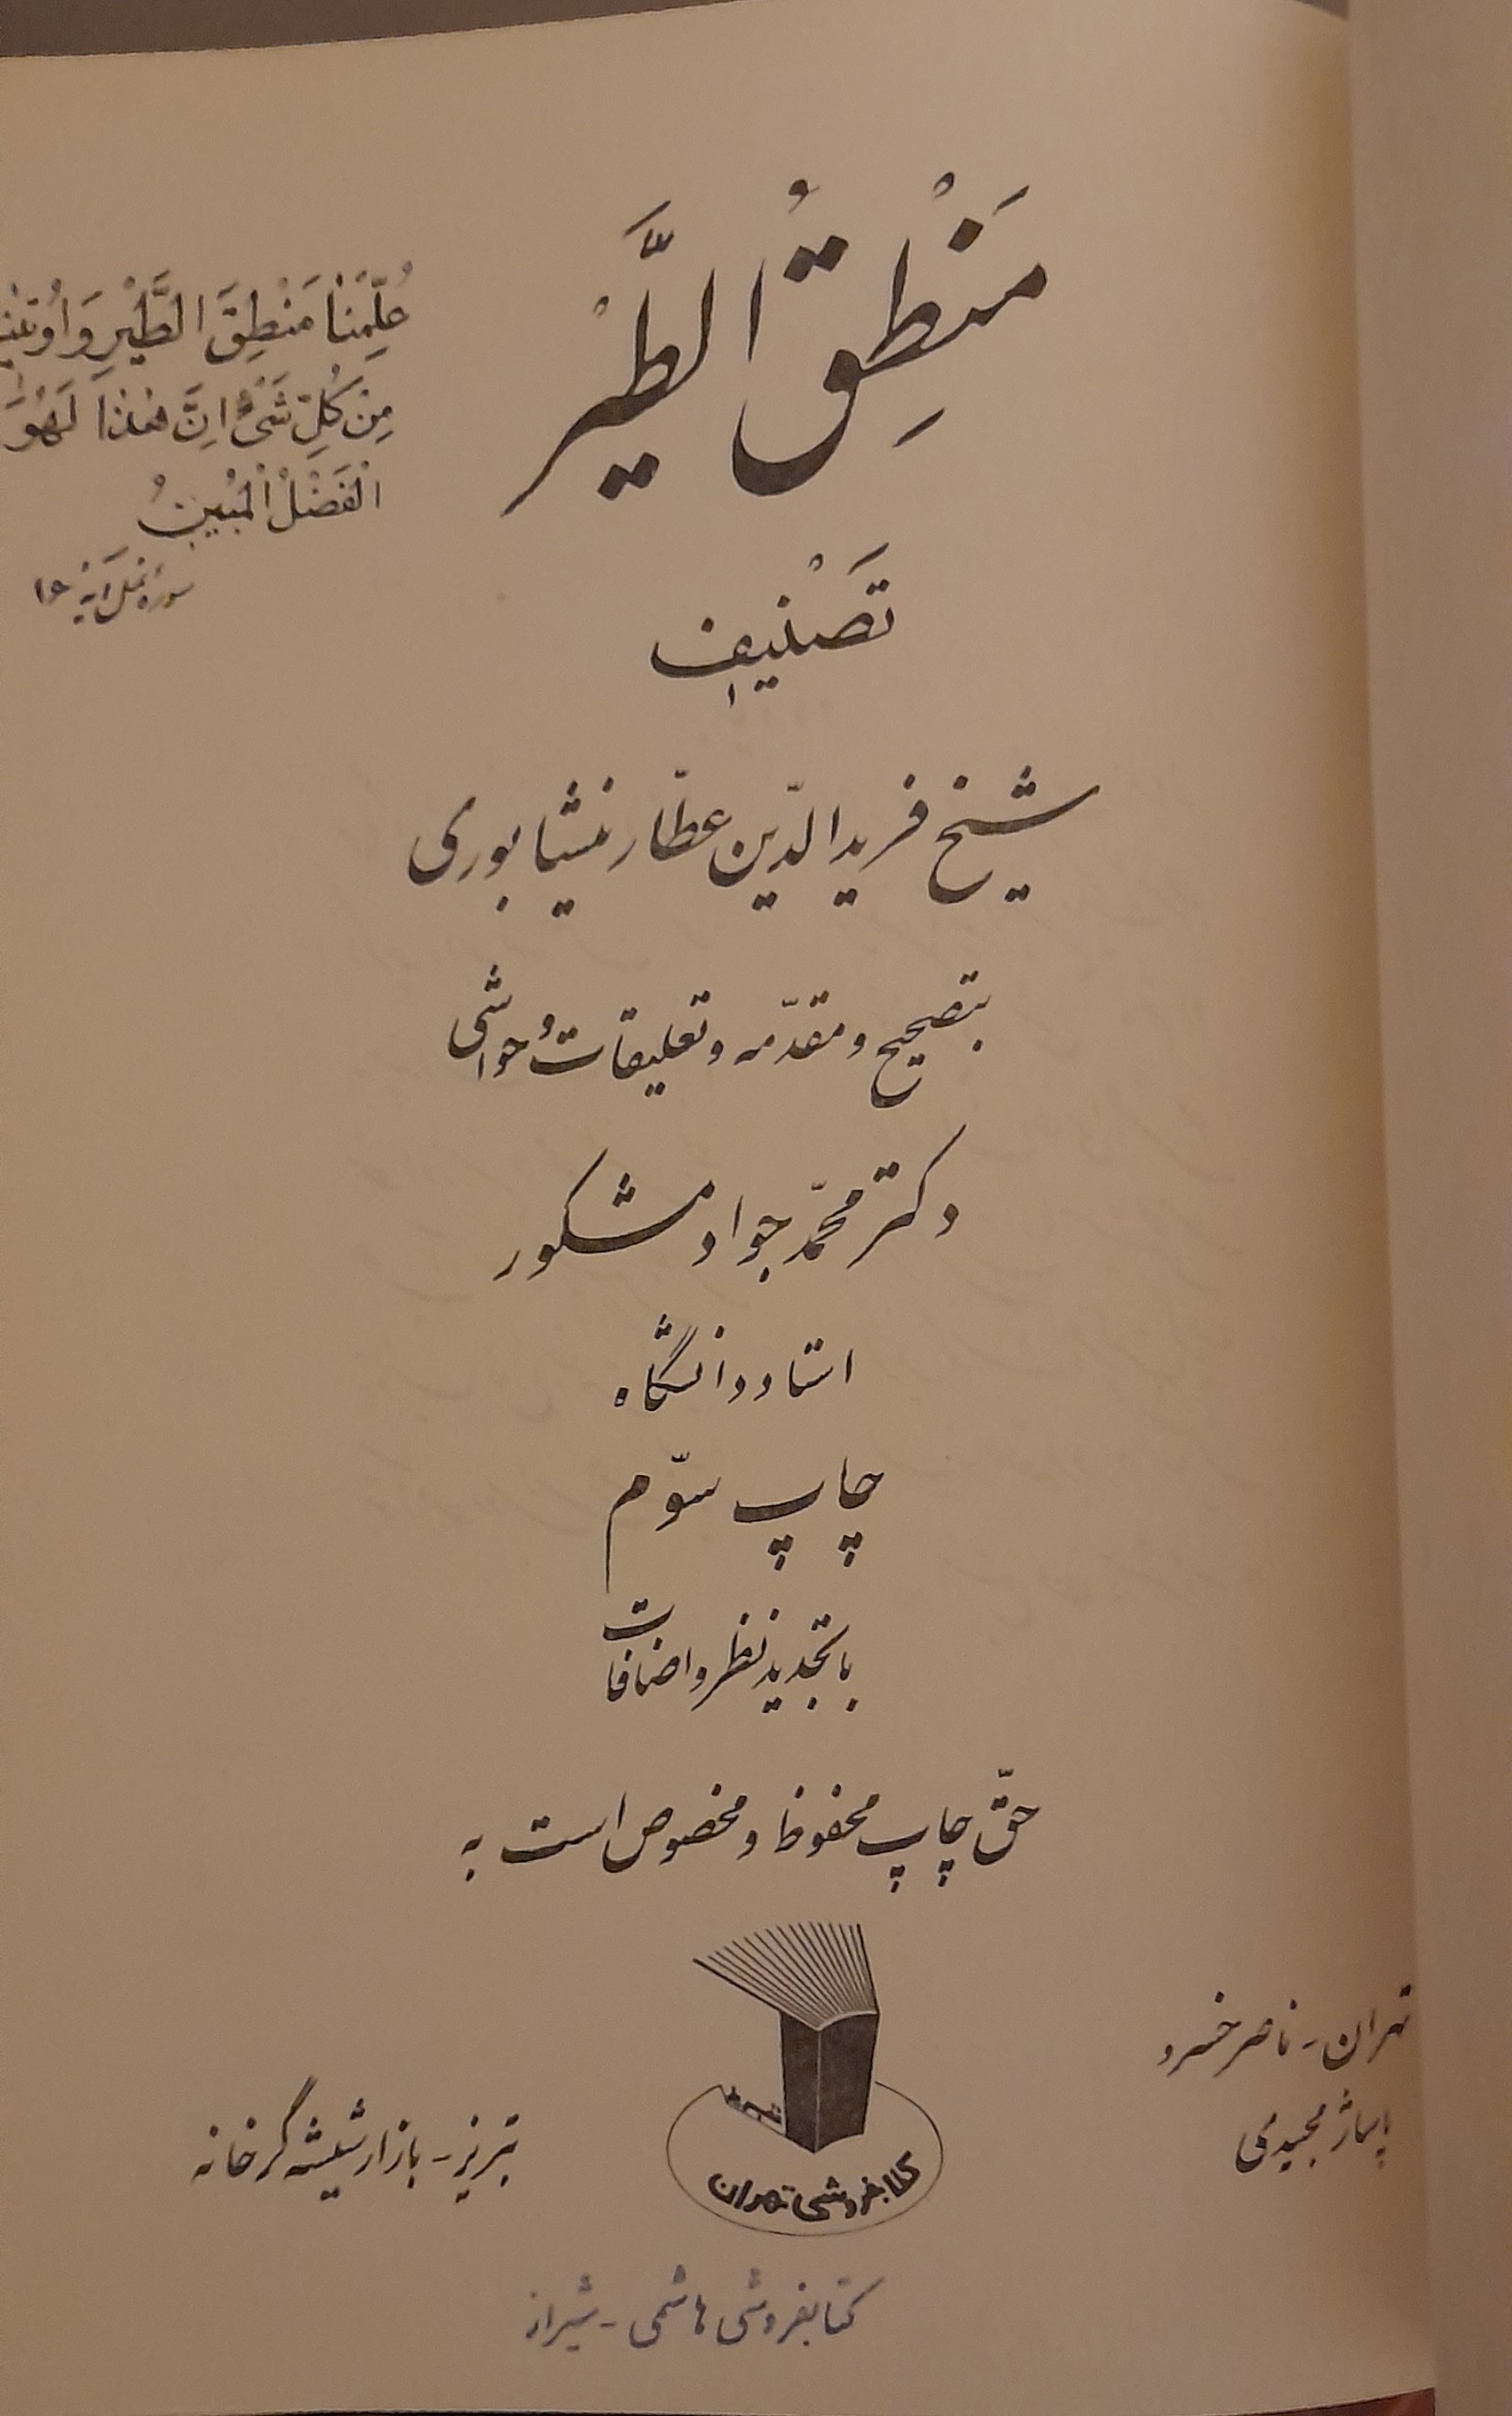 مَنْطِقُ الطَّیْر
عُلِّمْنَا مَنْطِقَ الطَّیْرِ وَ اُوتینا
مِنْ كُلِّ شَیْءٍ اِنَّ هٰذٰا لَهُوَ
الْفَضْلُ الْمُبینُ
سوره نمل آیه ۱۶
تَصْنیف
شیخ فریدالدّین عطّار نیشابوری
بتصحیح و مقدّمه و تعلیقات و حواشی
دکتر محمّد جواد مشکور
استاد دانشگاه
چاپ سوّم
با تجدید نظر و اضافات
حقّ چاپ محفوظ و مخصوص است به
تهران - ناصر خسرو
پاساژ مجیدی
کتابفروشی تهران
تبریز - بازار شیشه گرخانه
کتابفروشی هاشمی - شیراز